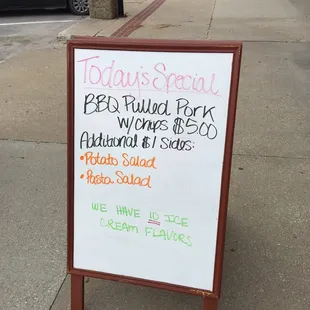 Today's Special
BBQ Pulled Pork
w/chips $5.00
Additional $1 Sides:
• Potato Salad
• Pasta Salad
WE HAVE 10 ICE
CREAM FLAVORS